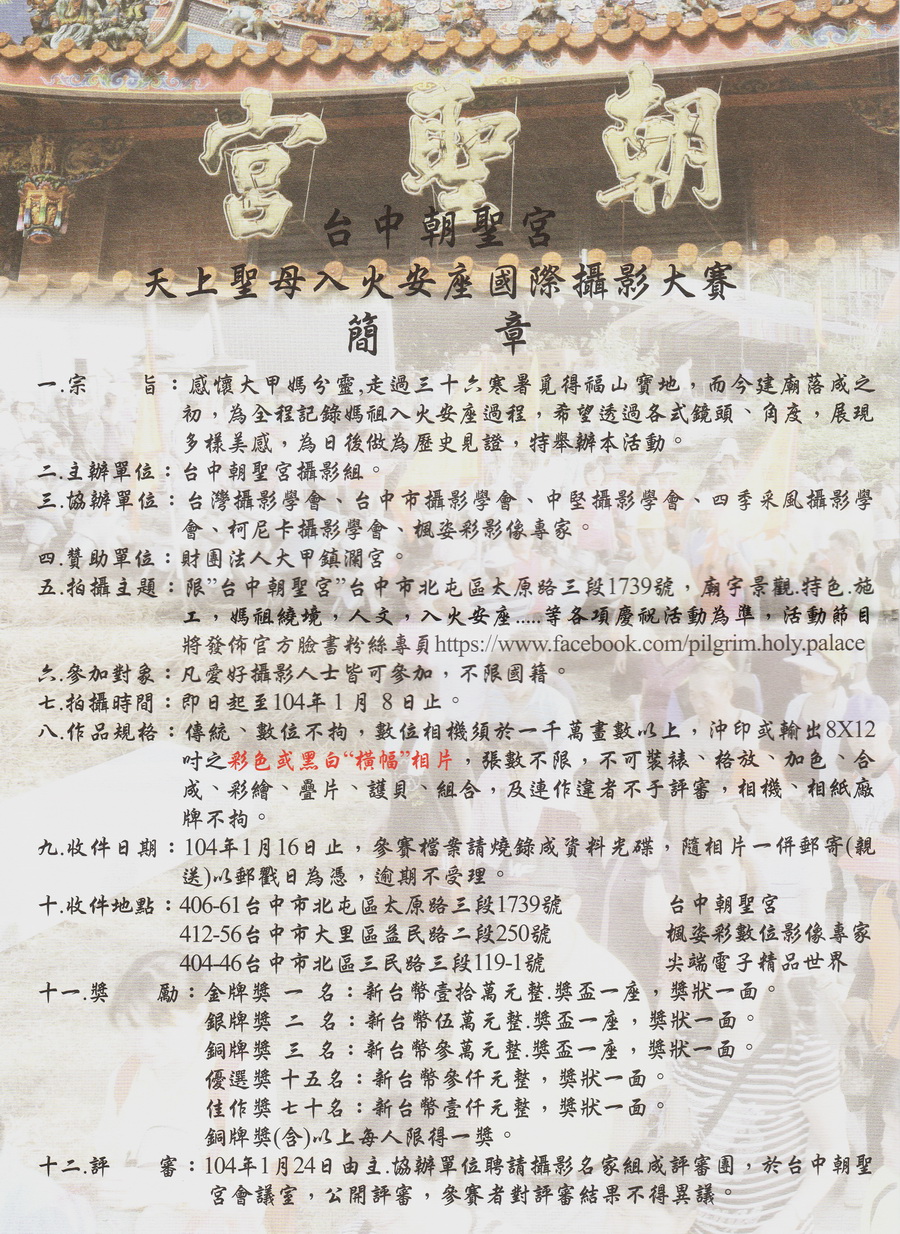 朝聖宮
台中朝聖宮
天上聖母入火安座國際攝影大賽
簡 章
一.宗 旨：感懷大甲媽分靈,走過三十六寒暑覓得福山寶地，而今建廟落成之
初，為全程記錄媽祖入火安座過程，希望透過各式鏡頭、角度，展現
多樣美感，為日後做為歷史見證，特舉辦本活動。
二.主辦單位：台中朝聖宮攝影組。
三.協辦單位：台灣攝影學會、台中市攝影學會、中堅攝影學會、四季采風攝影學
會、柯尼卡攝影學會、楓姿彩影像專家。
四.贊助單位：財團法人大甲鎮瀾宮。
五.拍攝主題：限”台中朝聖宮”台中市北屯區太原路三段1739號，廟宇景觀.特色.施
工，媽祖繞境，人文，入火安座.....等各項慶祝活動為準，活動節目
將發佈官方臉書粉絲專頁https://www.facebook.com/pilgrim.holy.palace
六.參加對象：凡愛好攝影人士皆可參加，不限國籍。
七.拍攝時間：即日起至104年 1 月 8 日止。
八.作品規格：傳統、數位不拘，數位相機須於一千萬畫數以上，沖印或輸出8X12
吋之彩色或黑白“橫幅”相片，張數不限，不可裝裱、格放、加色、合
成、彩繪、疊片、護貝、組合，及連作違者不予評審，相機、相紙廠
牌不拘。
九.收件日期：104年1月16日止，參賽檔案請燒錄成資料光碟，隨相片一併郵寄(親
送)以郵戳日為憑，逾期不受理。
十.收件地點：406-61台中市北屯區太原路三段1739號 台中朝聖宮
412-56台中市大里區益民路二段250號 楓姿彩數位影像專家
404-46台中市北區三民路三段119-1號 尖端電子精品世界
十一.獎 勵：金牌獎 一 名：新台幣壹拾萬元整.獎盃一座，獎狀一面。
銀牌獎 二 名：新台幣伍萬元整.獎盃一座，獎狀一面。
銅牌獎 三 名：新台幣參萬元整.獎盃一座，獎狀一面。
優選獎 十五名：新台幣參仟元整，獎狀一面。
佳作獎 七十名：新台幣壹仟元整，獎狀一面。
銅牌獎(含)以上每人限得一獎。
十二.評 審：104年1月24日由主.協辦單位聘請攝影名家組成評審團，於台中朝聖
宮會議室，公開評審，參賽者對評審結果不得異議。